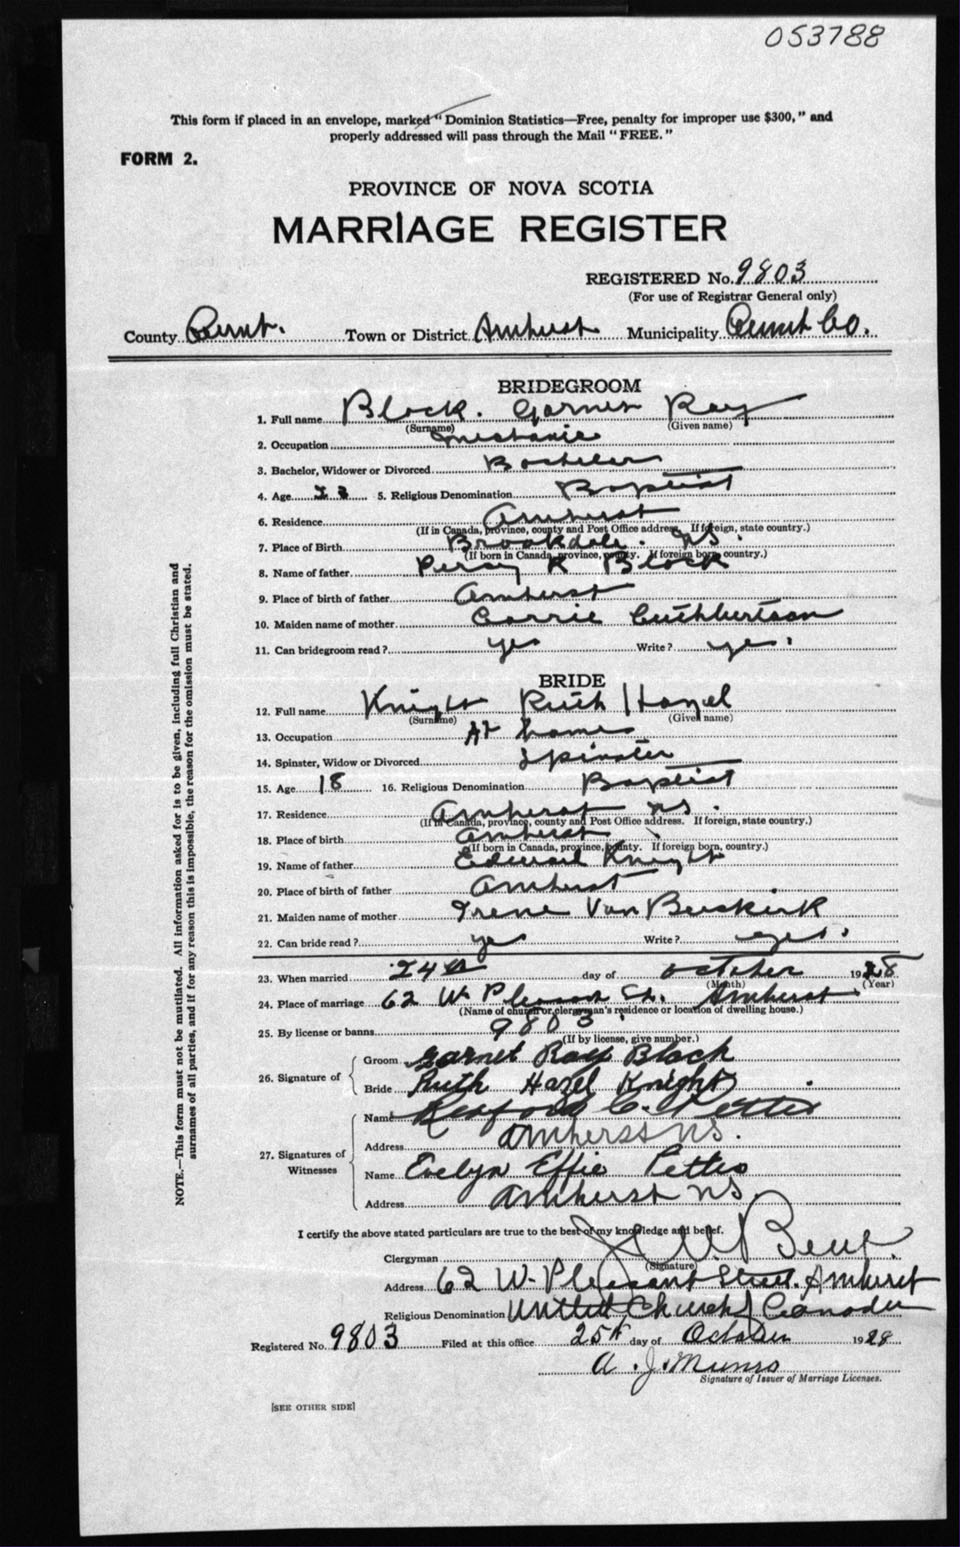 053788
This form if placed in an envelope, marked "Dominion Statistics—Free, penalty for improper use $300," and
properly addressed will pass through the Mail "FREE."
FORM 2.
PROVINCE OF NOVA SCOTIA
MARRIAGE REGISTER
REGISTERED No. 9803
(For use of Registrar General only)
County Town or District Amherst Municipality Co.
BRIDEGROOM
1. Full name Block. Garnet Ray
(Surname) (Given name)
2. Occupation mechanic
3. Bachelor, Widower or Divorced Bachelor
4. Age 23 5. Religious Denomination Baptist
6. Residence Amherst
(If in Canada, province, county and Post Office address. If foreign, state country.)
7. Place of Birth Brookdale. N.S.
(If born in Canada, province, county. If foreign born, country.)
8. Name of father Percy R Block
9. Place of birth of father Amherst
10. Maiden name of mother Carrie Cuthbertson
11. Can bridegroom read? yes Write? yes.
BRIDE
12. Full name Knight Ruth Hazel
(Surname) (Given name)
13. Occupation At home
14. Spinster, Widow or Divorced Spinster
15. Age 18 16. Religious Denomination Baptist
17. Residence Amherst N.S.
(If in Canada, province, county and Post Office address. If foreign, state country.)
18. Place of birth Amherst
(If born in Canada, province, county. If foreign born, country.)
19. Name of father Edward Knight
20. Place of birth of father Amherst
21. Maiden name of mother Irene Van Buskirk
22. Can bride read? yes Write? yes.
23. When married 24th day of October 1928
(Month) (Year)
24. Place of marriage 62 W. Pleasant St. Amherst
(Name of church or clergyman's residence or location of dwelling house.)
25. By license or banns 9803
(If by license, give number.)
26. Signature of
Groom Garnet Ray Block
Bride Ruth Hazel Knight
27. Signatures of Witnesses
Name C. Pettis
Address Amherst N.S.
Name Evelyn Effie Pettis
Address Amherst N.S.
I certify the above stated particulars are true to the best of my knowledge and belief.
Clergyman
(Signature)
Address 62 W. Pleasant Street. Amherst
Religious Denomination United Church of Canada
Registered No. 9803 Filed at this office 25th day of October 1928
A. J. Munro
Signature of Issuer of Marriage Licenses.
[SEE OTHER SIDE]
NOTE.—This form must not be mutilated. All information asked for is to be given, including full Christian and
surnames of all parties, and if for any reason this is impossible, the reason for the omission must be stated.